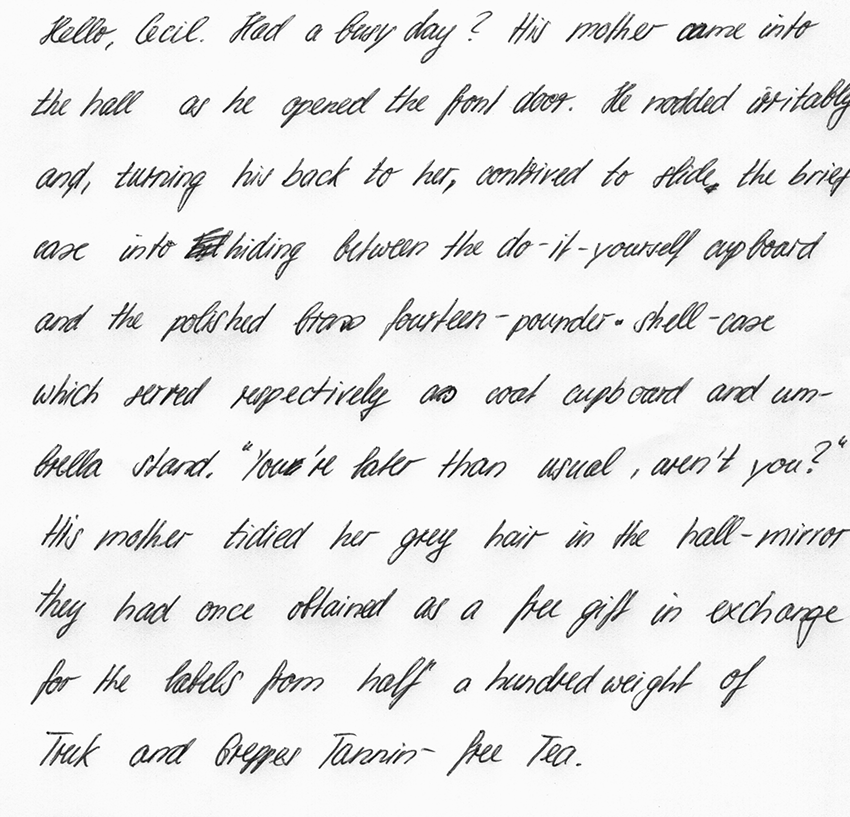 Hello, Cecil. Had a busy day? His mother came into
the hall as he opened the front door. He nodded irritably
and, turning his back to her, contrived to slide, the brief
case into hiding between the do-it-yourself cupboard
and the polished brass fourteen-pounder shell-case
which served respectively as coat cupboard and um-
brella stand. "You're later than usual, aren't you?"
His mother tidied her grey hair in the hall-mirror
they had once obtained as a free gift in exchange
for the labels from half a hundredweight of
and Tannin-free Tea.